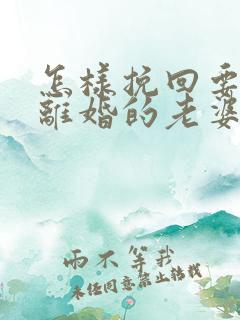 怎样挽回要
离婚的老婆
雨不等我
未经同意禁止转载